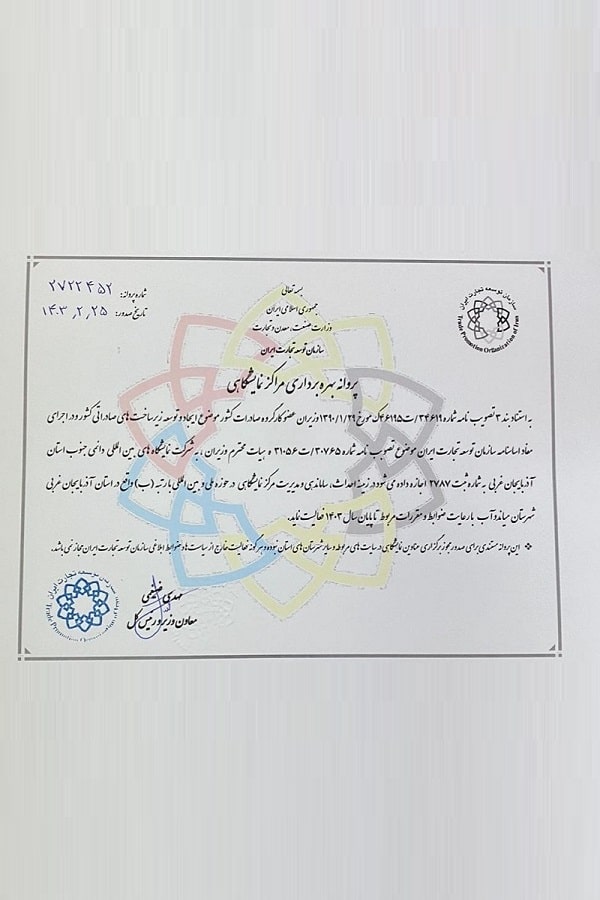 بسمه تعالی
جمهوری اسلامی ایران
وزارت صنعت، معدن و تجارت
سازمان توسعه تجارت ایران
شماره پروانه: ۲۷۲۲۴۵۲
تاریخ صدور: ۱۴۰۳٫۲٫۲۵
سازمان توسعه تجارت ایران
Trade Promotion Organization of Iran
پروانه بهره برداری مراکز نمایشگاهی
به استناد بند ۳ تصویب نامه شماره ۳۴۶۱۹/ت۴۶۱۹۵ک مورخ ۱۳۹۰/۱/۲۹ وزیران عضو کارگروه صادرات کشور موضوع ایجاد و توسعه زیرساخت های صادراتی کشور و در اجرای
مفاد اساسنامه سازمان توسعه تجارت ایران موضوع تصویب نامه شماره ۳۰۷۶۵/ت۳۱۰۵۶ ه هیات محترم وزیران، به شرکت نمایشگاه های بین المللی دائمی جنوب استان
آذربایجان غربی به شماره ثبت ۲۷۸۷ اجازه داده می شود در زمینه احداث، ساماندهی و مدیریت مرکز نمایشگاهی در حوزه ملی و بین المللی با رتبه (ب) واقع در استان آذربایجان غربی
شهرستان میاندوآب با رعایت ضوابط و مقررات مربوط تا پایان سال ۱۴۰۳ فعالیت نماید.
❖ این پروانه مستندی برای صدور مجوز برگزاری عناوین نمایشگاهی در سایت های مربوط و سایر شهرستان های استان نبوده و هرگونه فعالیت خارج از سیاست ها و ضوابط ابلاغی سازمان توسعه تجارت ایران مجاز نمی باشد.
مهدی ضیغمی
معاون وزیر و رئیس کل
سازمان توسعه تجارت ایران
Trade Promotion Organization of Iran